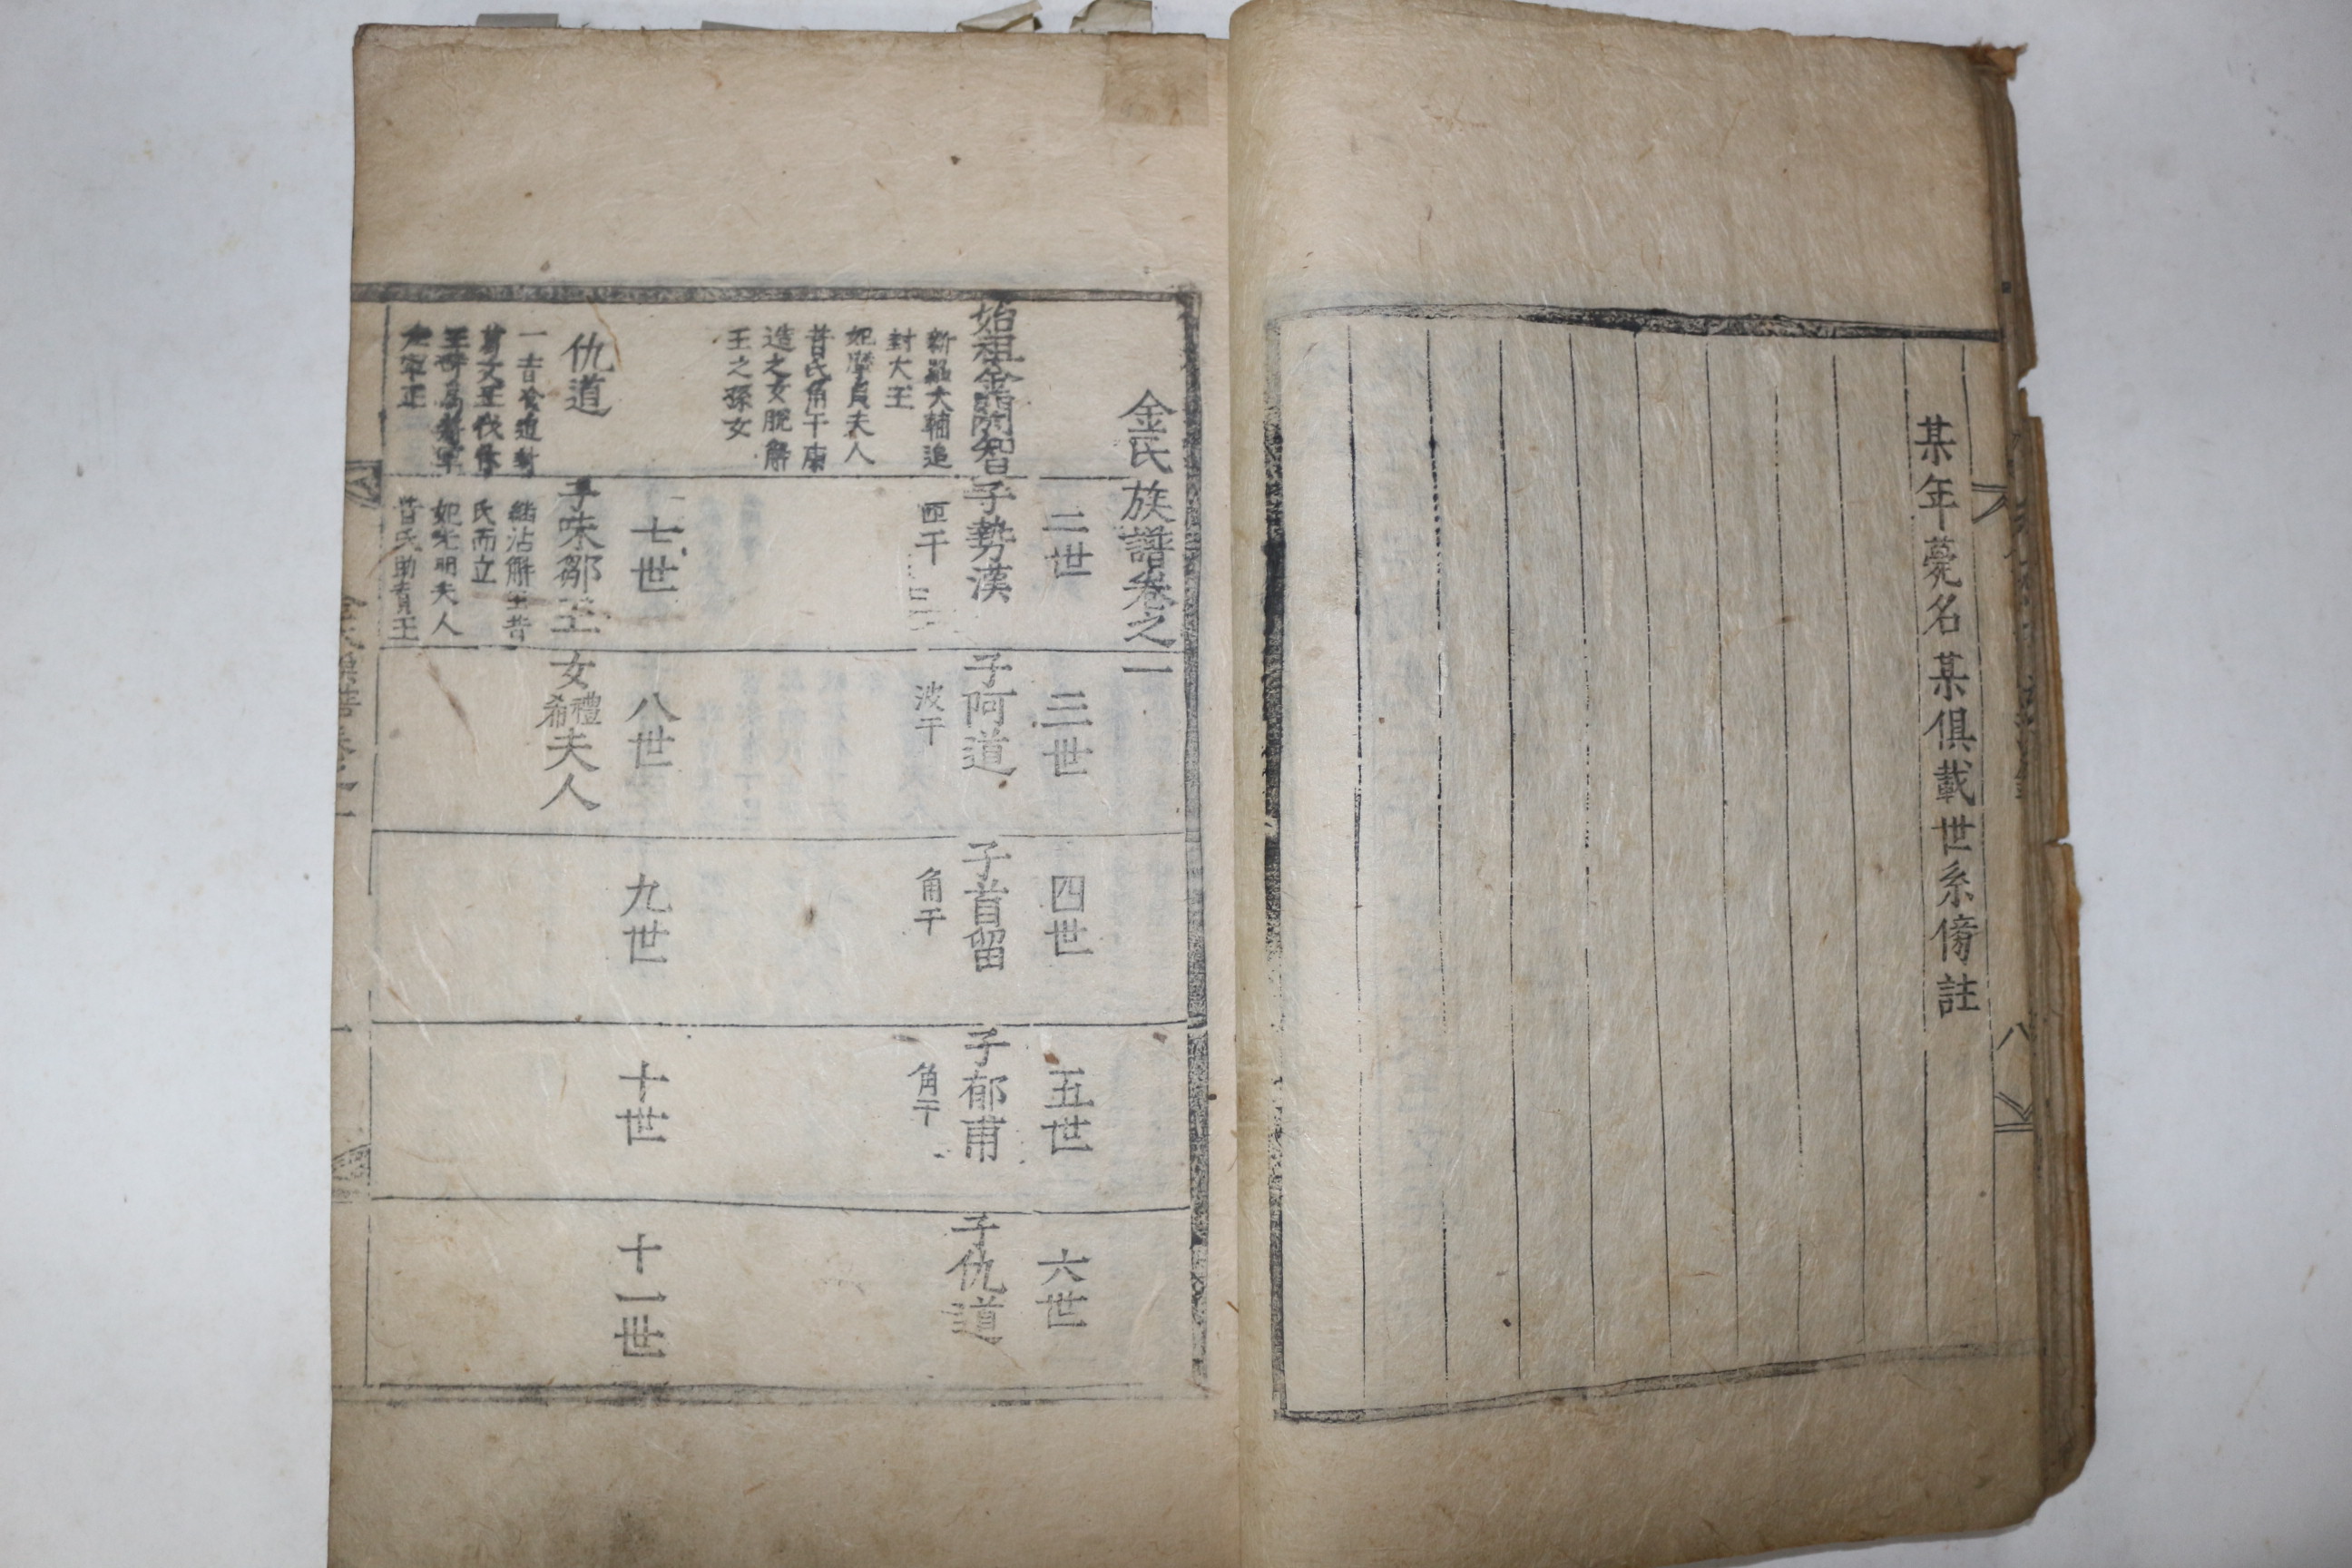 某年薨名某俱載世系傍註
八
金氏族譜卷之一
二世
三世
四世
五世
六世
始祖金閼智
新羅大輔追
封大王
妃摩貞夫人
昔氏角干康
造之女脫解
王之孫女
子勢漢
匝干
子阿道
波干
子首留
角干
子郁甫
角干
子仇道
七世
八世
九世
十世
十一世
仇道
子味鄒王
繼沾解王昔
氏而立
妃光明夫人
昔氏助賁王
女禮希夫人